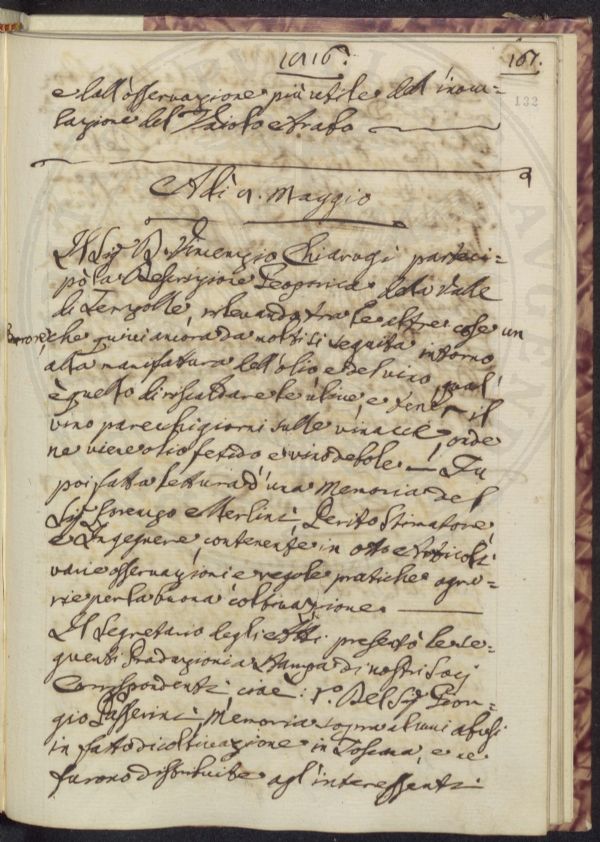 1816.
167.
132
e dall'osservazione più utile dell'inocu=
lazione del Vaiolo Arabo
Adì 9. Maggio
Il Sig. D. Vincenzio Chiarugi parteci=
pò la Descrizione Geoponica della Valle
di Terzolle, rilevando tra le altre cose un
errore, che quivi ancora da molti si seguita intorno
alla manifattura dell'olio e del vino, qual'
è quello di riscaldare le ulive e tener il
vino parecchi giorni sulle vinacce, onde
ne viene olio fetido e vino debole — Fu
poi fatta lettura d'una Memoria del
Sig. Lorenzo Merlini, Perito Stimatore,
e Ingegnere, contenente in otto Articoli
varie osservazioni e regole pratiche agra=
rie per la buona coltivazione
Il Segretario degli Atti presentò le se=
guenti Produzioni a Stampa di nostri Socj
Corrispondenti cioè: 1.° Del Sig. Gior=
gio Passerini, Memoria sopra alcuni abusi
in fatto di coltivazione in Toscana, e ne
furono distribuite agl'interessenti